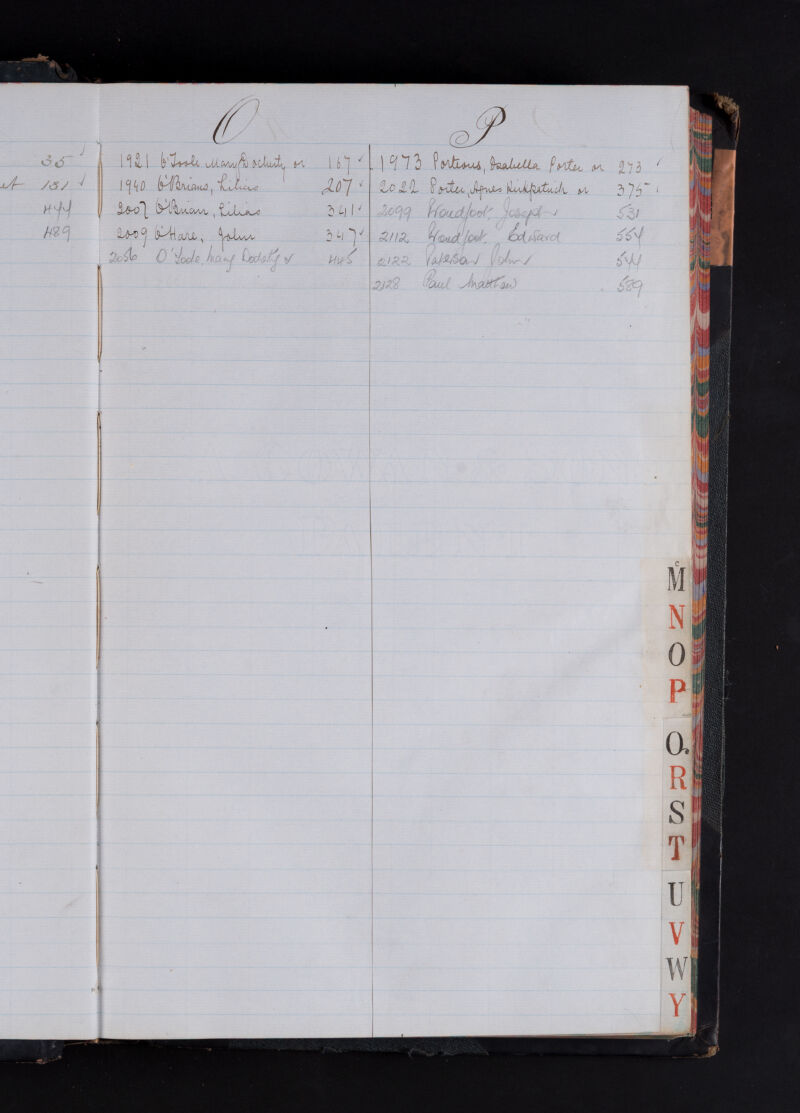 35
O
1921 O'Toole Mary Docherty or 167
1940 O'Brians, Lilias 207
2007 O'Brian, Lilias 341
2009 O'Hare, John 347
2056 O'Toole, Mary or 445
P
1973 Porteous, Isabella Porter or 273
2022 Porter, Agnes Kirkpatrick or 375
2099 Proudfoot, Joseph 531
2112 Proudfoot, Edward 554
2122 Paterson John 544
2128 Paul Matthew 589
131
444
489
Mc
N
O
P
Q
R
S
T
U
V
W
Y